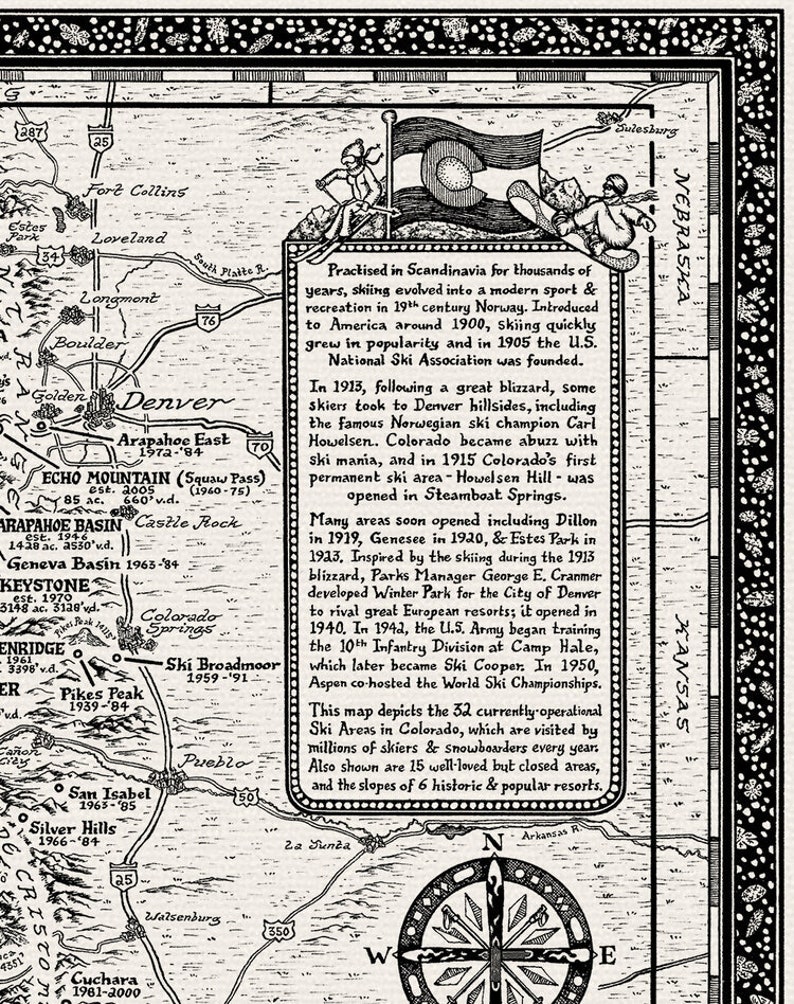 G
287
25
Julesburg
NEBRASKA
Fort Collins
Estes
Park
Loveland
34
South Platte R.
Longmont
76
Boulder
Golden
Denver
Arapahoe East
1972-'84
70
ECHO MOUNTAIN (Squaw Pass)
est. 2005 (1960-75)
85 ac. 660' v.d.
ARAPAHOE BASIN
est. 1946
1428 ac. 2530' v.d.
Castle Rock
Geneva Basin 1963-'84
KEYSTONE
est. 1970
3148 ac. 3128' v.d.
Colorado
Springs
ENRIDGE
1961
3398' v.d.
Ski Broadmoor
1959-'91
Pikes Peak
1939-'84
ER
v.d.
Cañon
City
Pueblo
San Isabel
1963-'85
50
Silver Hills
1966-'84
La Junta
Arkansas R.
25
CRISTO
Walsenburg
350
Cuchara
1981-2000
Practised in Scandinavia for thousands of
years, skiing evolved into a modern sport &
recreation in 19th century Norway. Introduced
to America around 1900, skiing quickly
grew in popularity and in 1905 the U.S.
National Ski Association was founded.
In 1913, following a great blizzard, some
skiers took to Denver hillsides, including
the famous Norwegian ski champion Carl
Howelsen. Colorado became abuzz with
ski mania, and in 1915 Colorado's first
permanent ski area - Howelsen Hill - was
opened in Steamboat Springs.
Many areas soon opened including Dillon
in 1919, Genesee in 1920, & Estes Park in
1923. Inspired by the skiing during the 1913
blizzard, Parks Manager George E. Cranmer
developed Winter Park for the City of Denver
to rival great European resorts; it opened in
1940. In 1942, the U.S. Army began training
the 10th Infantry Division at Camp Hale,
which later became Ski Cooper. In 1950,
Aspen co-hosted the World Ski Championships.
This map depicts the 32 currently-operational
Ski Areas in Colorado, which are visited by
millions of skiers & snowboarders every year.
Also shown are 15 well-loved but closed areas,
and the slopes of 6 historic & popular resorts.
KANSAS
N
W
E